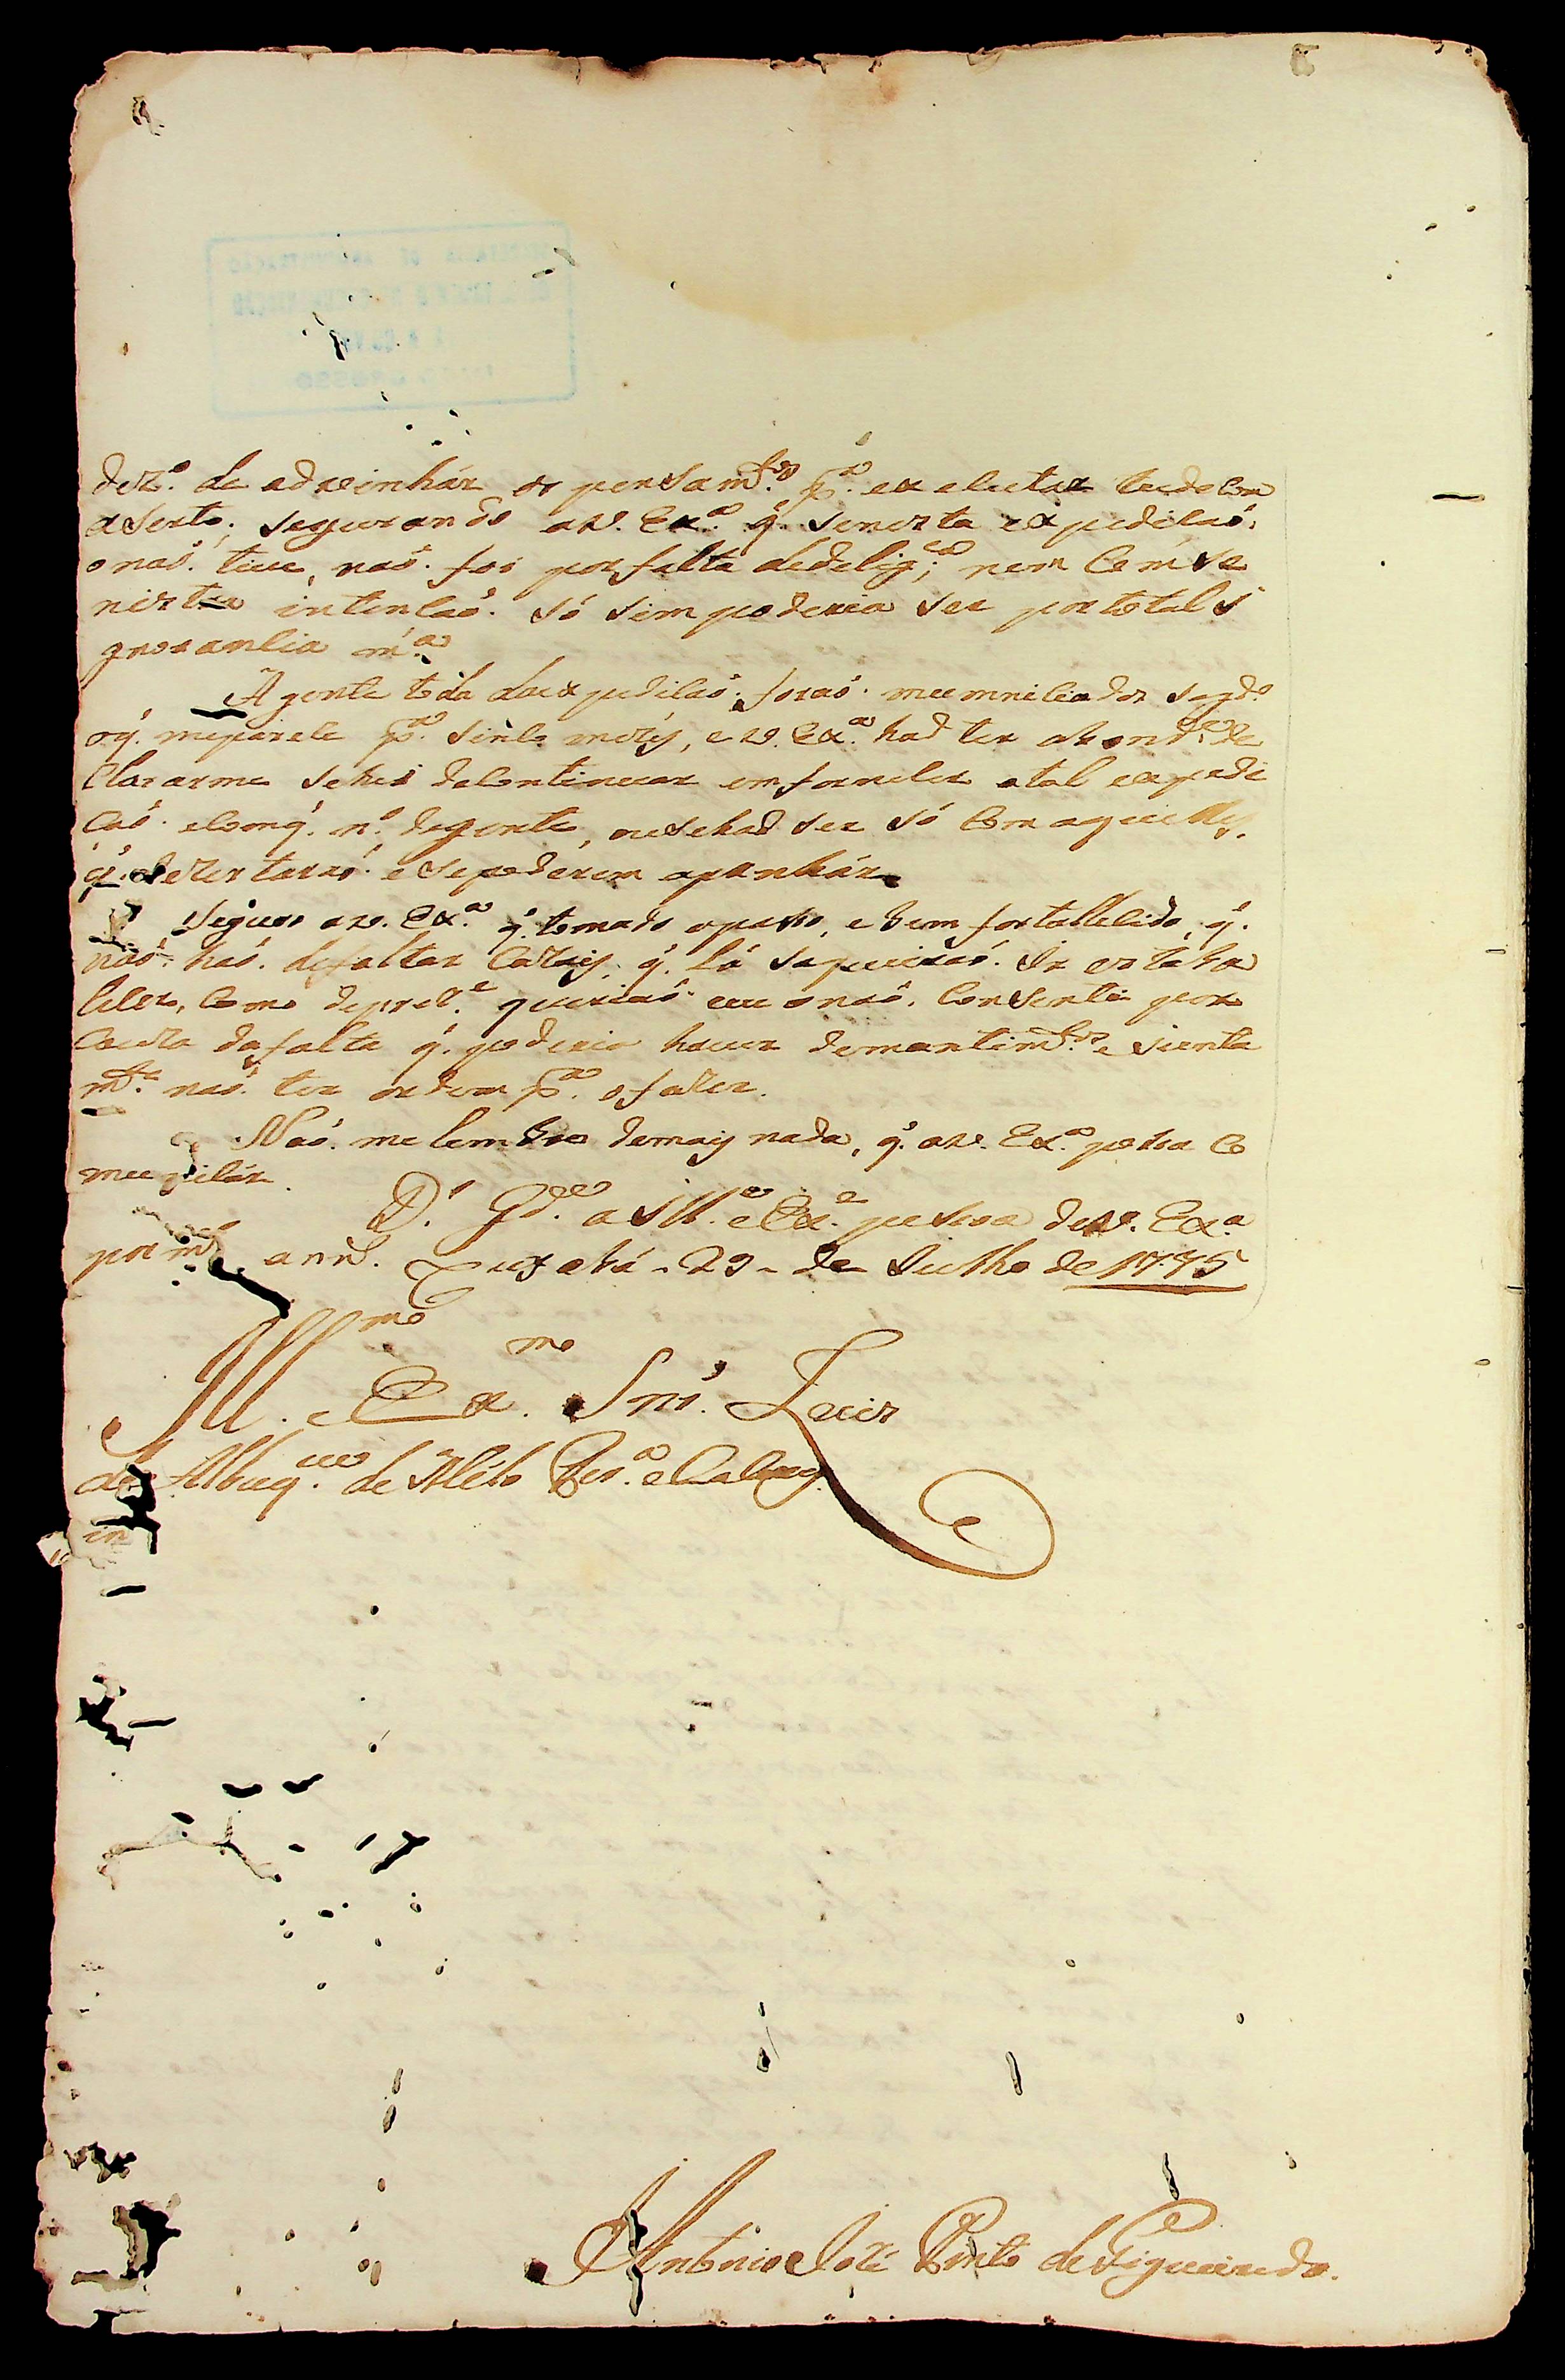 dezº. de advinhár os pensamtos. pª. exelutar tudo Com
aserto; segurando a V. Exª. q̃. se nesta expedisaó.
o naó. tive, naó. foi por falta de deligcª; nem Com si
nistra intensaó. Só sim poderia ser por total i
gnorancia mª.
A gente toda da expedisaó. foraó. municiados segdº
o q̃. me parece pª. sinco mezes, e V. Exª. had ter a bondᵉ. de
Clararme se hei de Continuar em fornecer a tal expedi
çaó. e Com q̃. nº. de gente, ou se had ser só Com aquelles,
q̃. dezertaraó. e se poderem apanhár.
Seguro a V. Exª. q̃. tomado o paso, e bem fortallecido, q̃.
naó. haó. de faltar Cazais, q̃. lá se queiraó. ir estabe
lecer, Como de prezᵉ. queriaó. eu o naó. Consenti por
Cauza da falta q̃. poderia haver de mantimtos. e juenta
mte. naó. ter ordem pª. o fazer.
Naó. me lembro de mais nada, q̃. a V. Exª. posa Co
municár.
D.ˢ Gdᵉ. a Illᵉ. e Exᵉ. pesoa de V. Exª
por ms. anns. Cuyabá - 29 - de Julho de 1775
Illmo. e Exmo. Snr̃. Luis
de Albuqᵘᵉ. de Mello Perª. e Caceres
Antonio José Pinto de Figueiredo.